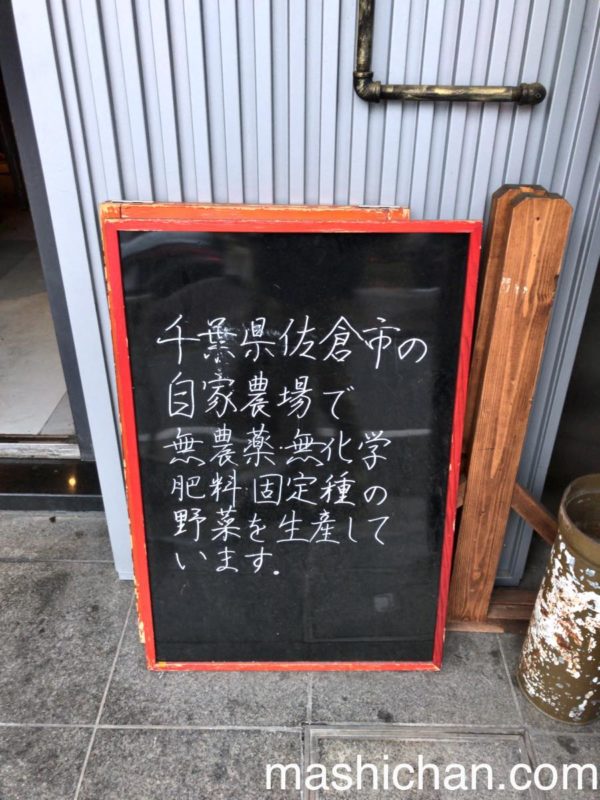 千葉県佐倉市の
自家農場で
無農薬・無化学
肥料 固定種の
野菜を生産して
います.
mashichan.com